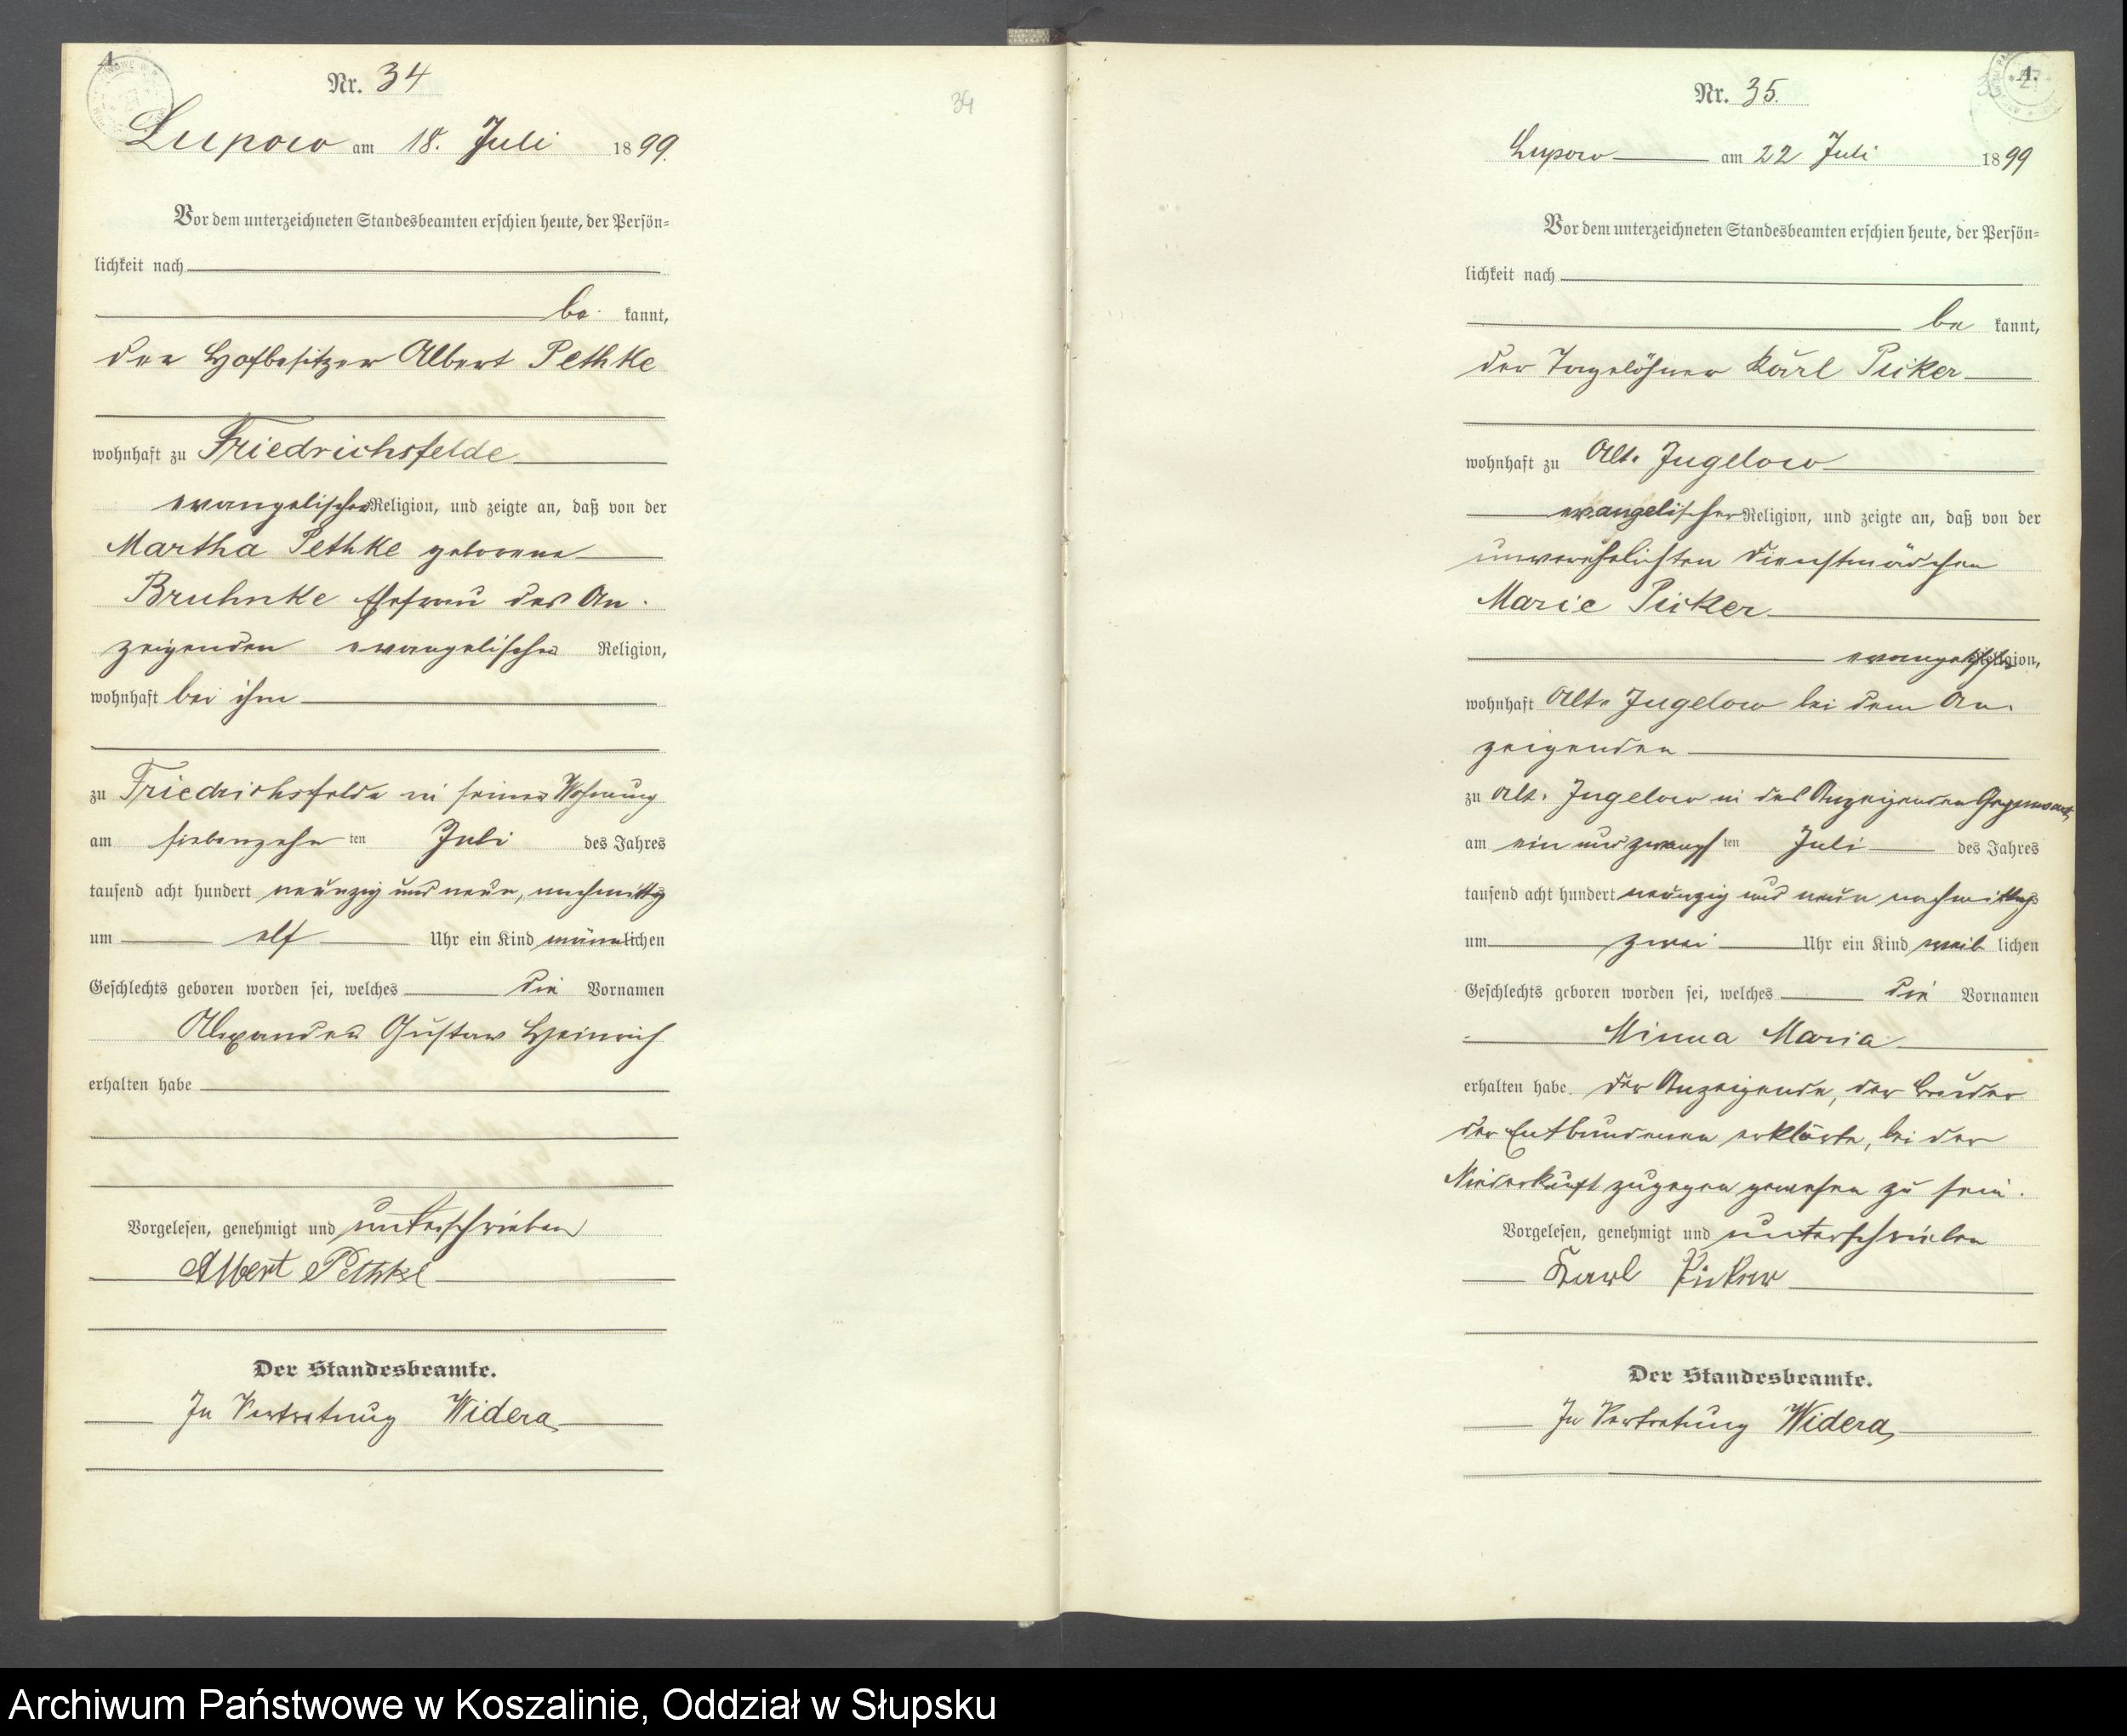 A.
Nr. 34
Lupow am 18. Juli 1899.
Vor dem unterzeichneten Standesbeamten erschien heute, der Persön-
lichkeit nach
be kannt,
der Hofbesitzer Albert Pethke
wohnhaft zu Friedrichsfelde
evangelischer Religion, und zeigte an, daß von der
Martha Pethke geborene
Bruhnke Ehefrau des An-
zeigenden evangelischer Religion,
wohnhaft bei ihm
zu Friedrichsfelde in seiner Wohnung
am siebenzehn ten Juli des Jahres
tausend acht hundert neunzig und neun, nachmittags
um elf Uhr ein Kind männlichen
Geschlechts geboren worden sei, welches die Vornamen
Alexander Gustav Heinrich
erhalten habe
Vorgelesen, genehmigt und unterschrieben
Albert Pethke
Der Standesbeamte.
In Vertretung Widera
34
A.
Nr. 35.
Lupow am 22 Juli 1899
Vor dem unterzeichneten Standesbeamten erschien heute, der Persön-
lichkeit nach
be kannt,
der Tagelöhner Karl Piker
wohnhaft zu Alt. Jugelow
evangelischer Religion, und zeigte an, daß von der
unverehelichten Dienstmädchen
Marie Piker
evangelischer Religion,
wohnhaft Alt. Jugelow bei dem An-
zeigenden
zu Alt. Jugelow in des Anzeigenden Gegenwart,
am ein und zwanzig ten Juli des Jahres
tausend acht hundert neunzig und neun nachmittags
um zwei Uhr ein Kind weib lichen
Geschlechts geboren worden sei, welches die Vornamen
Minna Maria
erhalten habe. Der Anzeigende, der Bruder
der Entbundenen erklärte, bei der
Niederkunft zugegen gewesen zu sein.
Vorgelesen, genehmigt und unterschrieben
Karl Piker
Der Standesbeamte.
In Vertretung Widera
Archiwum Państwowe w Koszalinie, Oddział w Słupsku